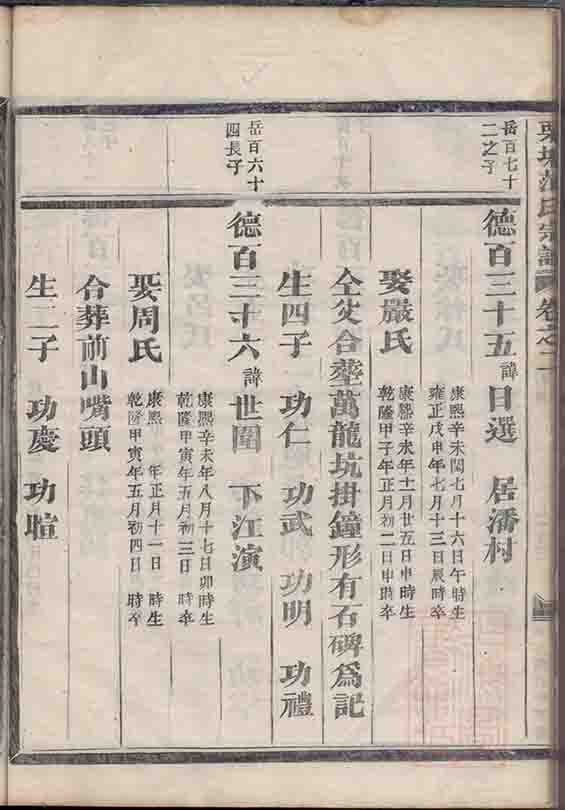 栗塘范氏宗譜 卷之二
岳百七十二之子
德百三十五諱日選 居潘村
康熙辛未閏七月十六日午時生
雍正戊申年七月十三日辰時卒
娶嚴氏
康熙辛未年十二月廿五日申時生
乾隆甲子年正月初二日申時卒
仝父合塟萬龍坑掛鐘形有石碑爲記
生四子 功仁 功武 功明 功禮
岳百六十四長子
德百三十六諱世圍 下江演
康熙辛未年八月十七日卯時生
乾隆甲寅年五月初三日 時卒
娶周氏
康熙 年正月十一日 時生
乾隆甲寅年五月初四日 時卒
合葬前山嘴頭
生二子 功慶 功暄